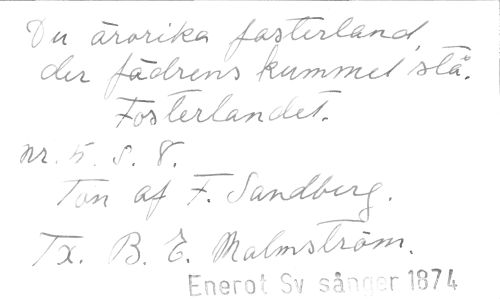 Du ärorika fosterland,
der fädrens kummel stå.
Fosterlandet.
nr. 5. s. 8.
Ton af F. Sandberg.
Tx. B. E. Malmström.
Enerot Sv sånger 1874